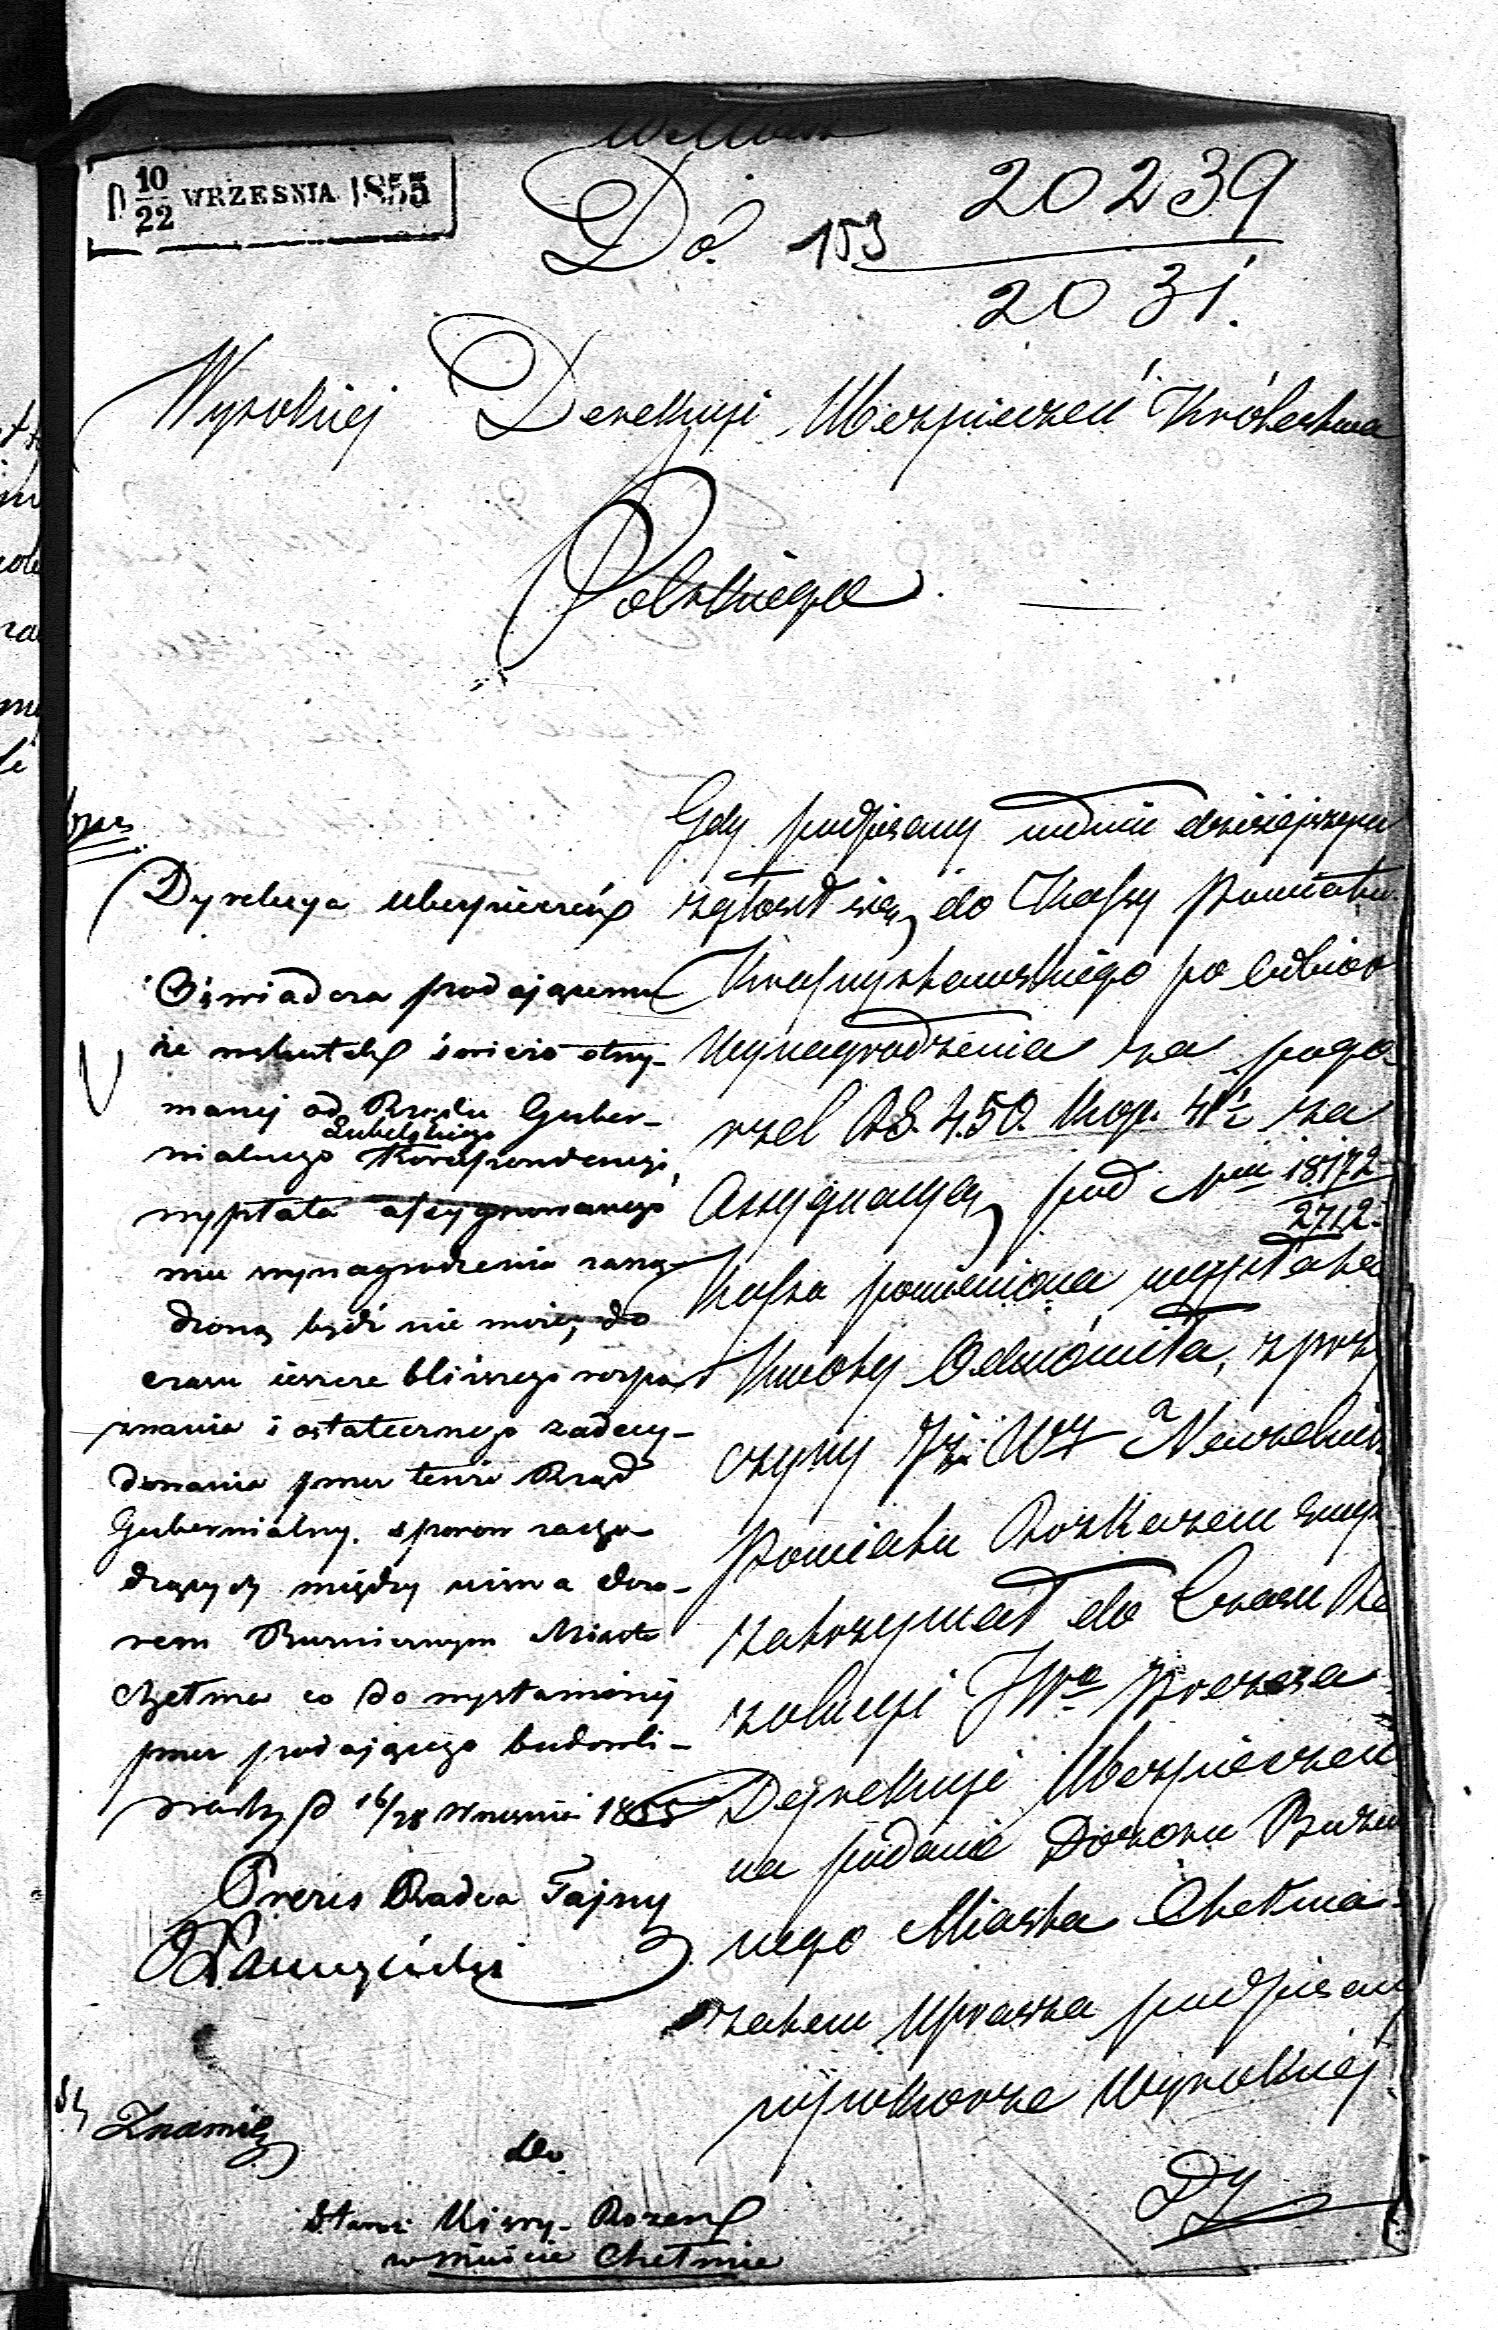 D 10/22 WRZESNIA 1855
Do. 153 20239
2031.
Wysokiej Derekcyi Ubezpieczeń Królestwa
Polskiego
Gdy podpisany wdniu dzisiejszym
zgłosił się do Kassy Powiatu
Krasnystawskiego po odbior
Wynagrodzenia za pogo
rzel RS. 450. Kop. 4½ za
Assygnacyą pod Nrm 18172
2712.
Kassa pomieniona wypłata
Kwoty Odmówiła, z przy
czyny Iż Wy Naczelnik
Powiatu Rozkazem swym
zatrzymał do Czasu Re
zolucyi JWo Prezesa
Dyrekcyi Ubezpieczeń
na podanie Dozoru Buzni
nego Miasta Chełma
zatem Uprasza podpisany
najpokorze Wysokiej
Dy
Dyrekcya Ubezpieczeń
Oświadcza podającemu
że wskutek świeżo otrzy-
manej od Rządu Guber-
nialnego Lubelskiego Korrespondencyi,
wypłata assygnowanego
mu wynagrodzenia zarzą-
dzoną bydź nie może, do
czasu ieszcze bliższego rozpo
znania i ostatecznego zadecy-
dowania przez tenże Rząd
Gubernialny. sporow zacho-
dzących między nim a Dozo-
rem Buznicznym Miasta
Chełma co do wystawionej
przez podającego budowli -
d 16/28 Września 1855
Prezes Radca Tajny
Do
Kiwy Rozen
w mieście Chełmie